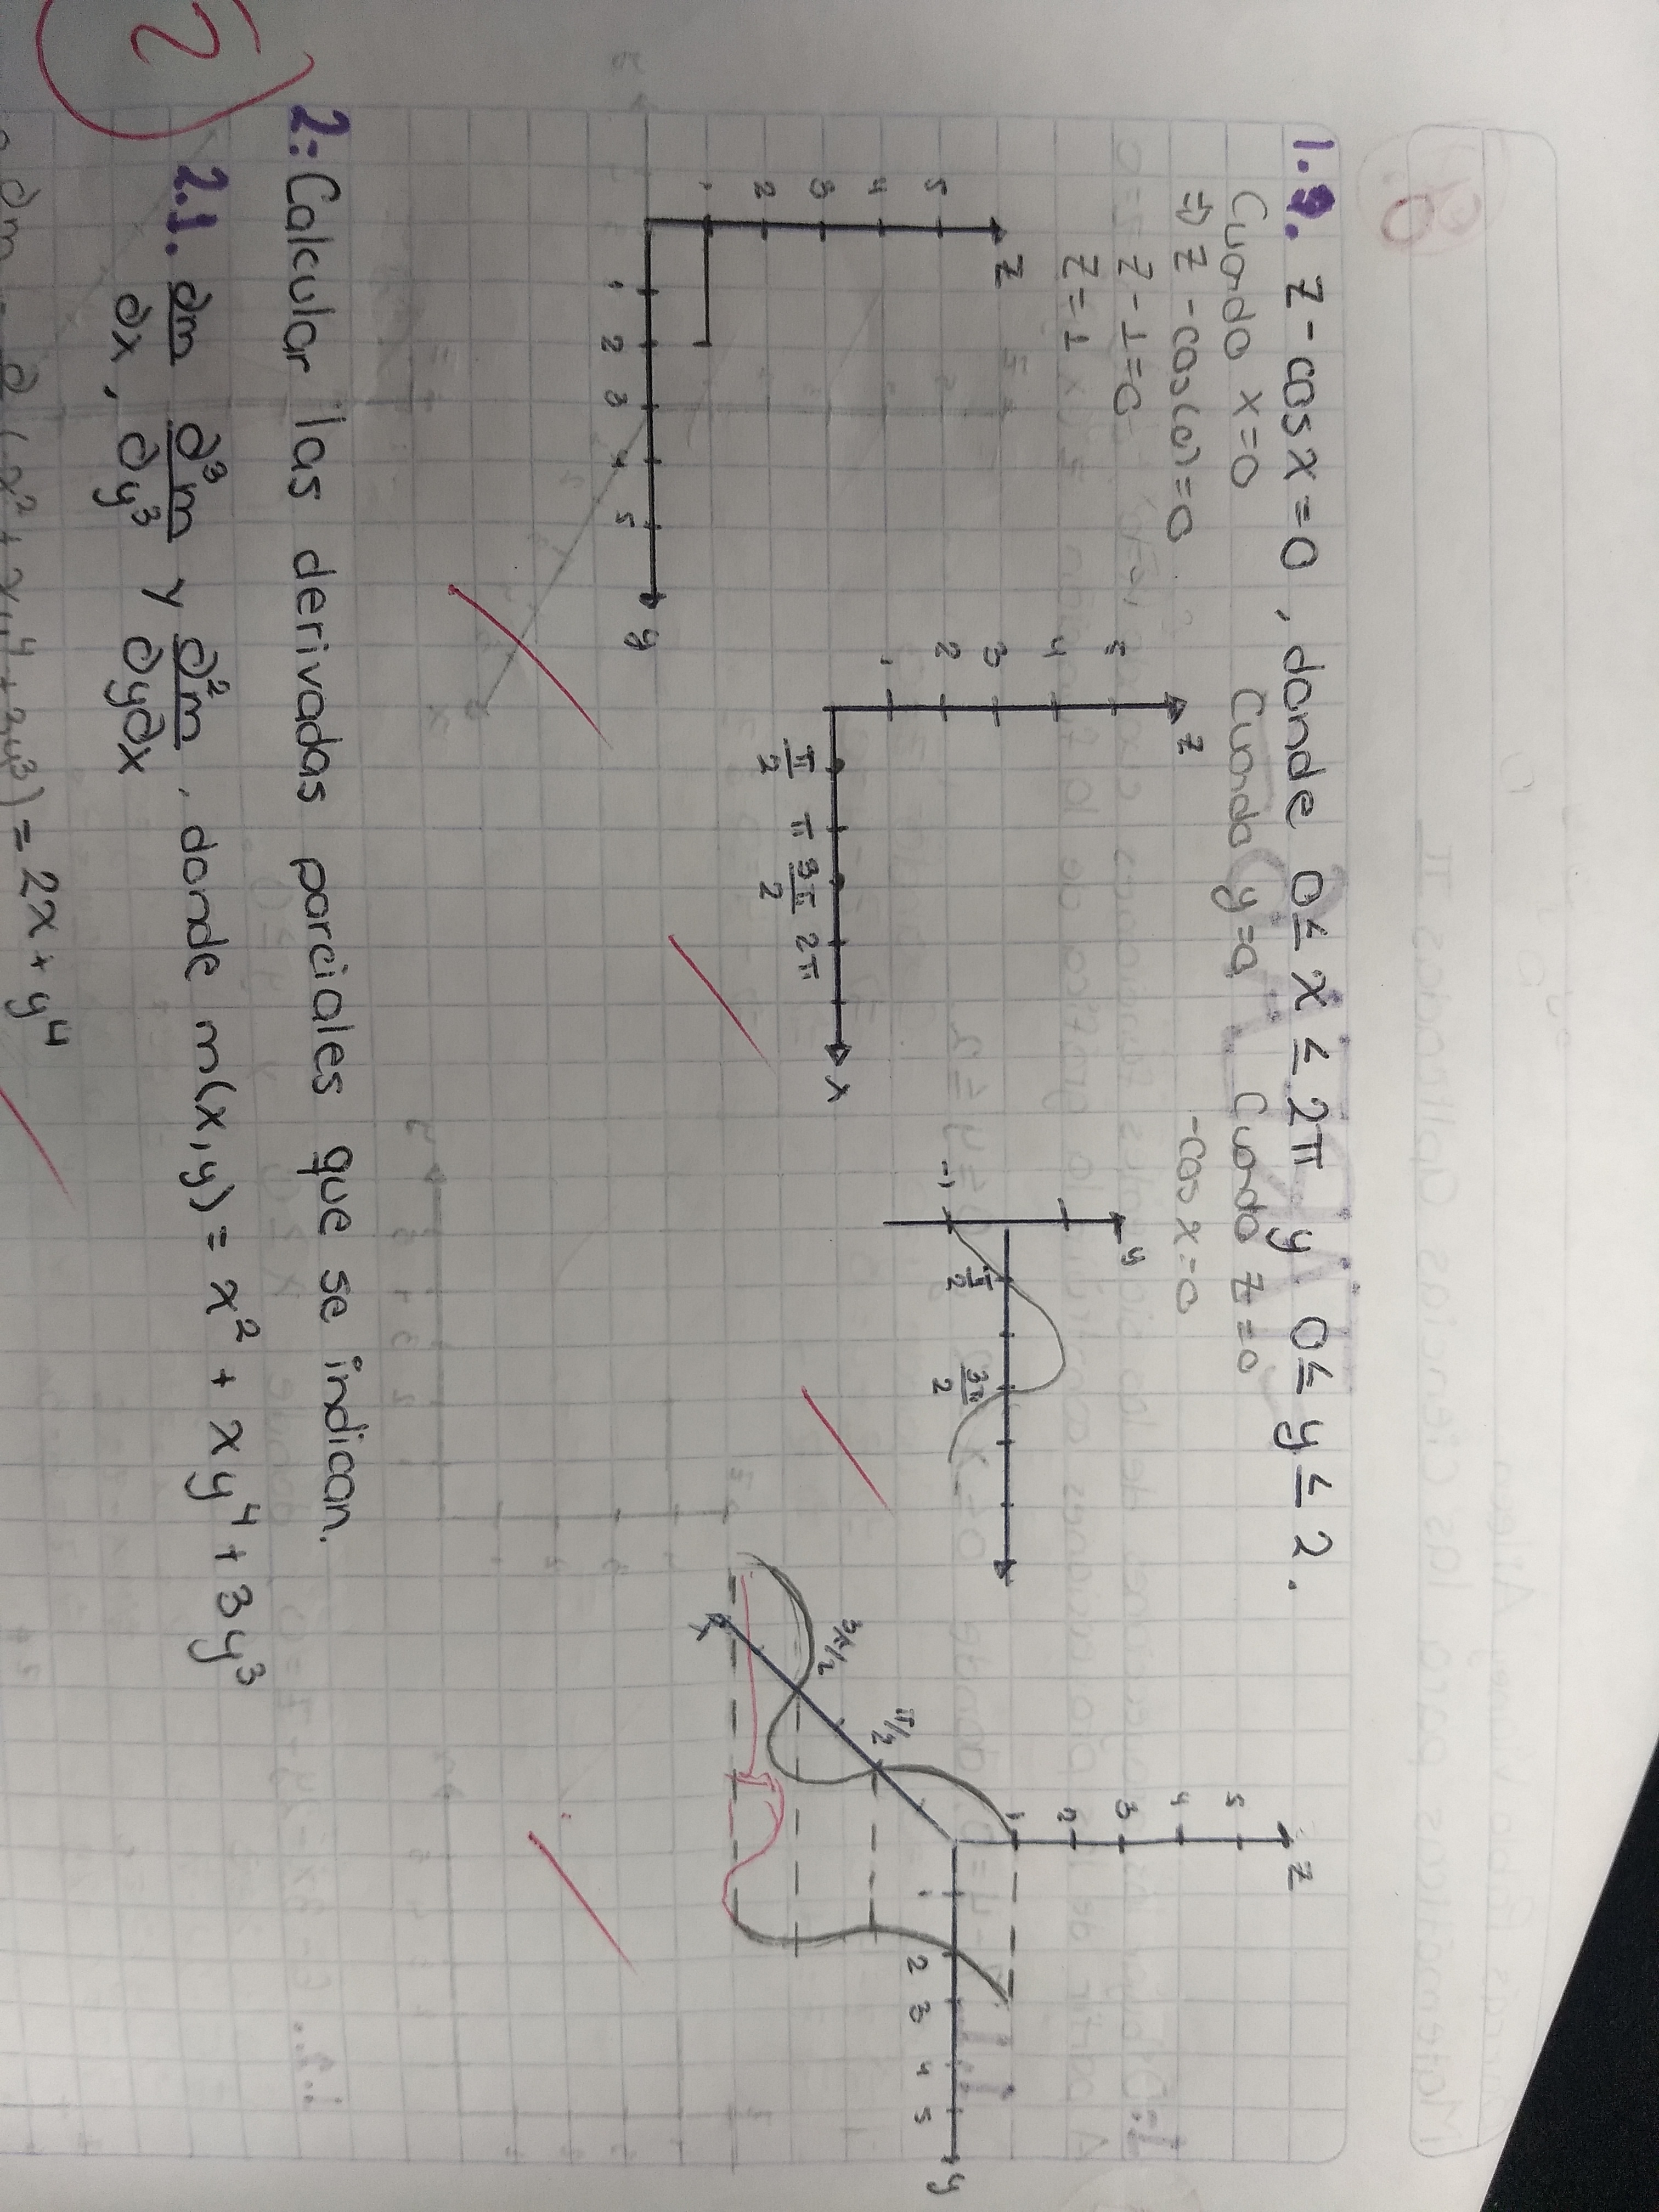 1.9. z-cosx=0, donde 0≤ x ≤ 2π y 0≤ y ≤ 2.
Cuando x=0
⇒ z -cos(0)=0
z-1=0
z=1
Cuando y=0
Cuando z=0
-cos x=0
z
5
4
3
2
1
1 2 3 4 5 y
z
5
4
3
2
1
π/2 π 3π/2 2π x
y
-1
π/2 3π/2
z
5
4
3
2
1
1 2 3 4 5 y
π/2
3π/2
x
2: Calcular las derivadas parciales que se indican.
2
2.1. ∂m/∂x, ∂³m/∂y³ y ∂²m/∂y∂x, donde m(x,y)= x² + xy⁴+3y³
∂m = ∂ (x²+xy⁴+3y³) = 2x+y⁴